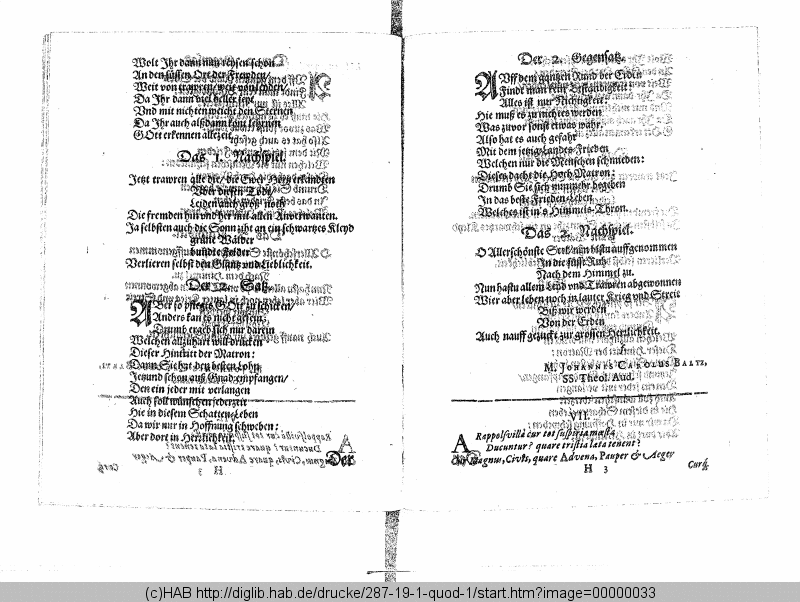 Wolt Ihr dann nun reysen schon
An den süssen Ort der Frewden/
Weit von trawren/ weit von leyden/
Da Ihr dann viel heller seyt
Vnd mit nichten weicht den Sternen
Da Ihr auch alsdann könt lehrnen
GOtt erkennen allezeit.
Das 1. Nachspiel.
Jetzt trawren alle die/ die Ewer Hertz erkandten
Von diesen Todt/
Leiden auch groß noth
Die fremden hin vnd her mit allen Anverwanten.
Ja selbsten auch die Sonn ziht an ein schwartzes Kleyd
grüne Wälder
bundte Felder
Verlieren selbst den Glantz vnd Lieblichkeit.
Der 2. Satz.
ABer so pflegts GOtt zu schicken/
Anders kan es nicht gesein:
Drumb ergeb sich nur darein
Welchen allzuhart will drucken
Dieser Hintritt der Matron:
Dann Sie hat den besten Lohn
Jetzund schon auß Gnad empfangen/
Den ein jeder mit verlangen
Auch soll wünschen jederzeit
Hie in diesem Schatten-Leben
Da wir nur in Hoffnung schweben:
Aber dort in Herrlichkeit.
Der
Der 2. Gegensatz.
AUff dem gantzen Rund der Erden
Findt man keine Beständigkeit:
Alles ist nur Nichtigkeit:
Hie muß es zu nichtes werden
Was zuvor sonst etwas wahr.
Also hat es auch gefahr
Mit dem jetzig Landes-Frieden
Welchen nur die Menschen schmieden:
Dieses dacht die Hoch Matron:
Drumb Sie sich nunmehr begeben
In das beste Frieden-Leben
Welches ist in's Himmels-Thron.
Das 2. Nachspiel.
O Allerschönste Seel nun bistu auffgenommen
In die süsse Ruh
Nach dem Himmel zu.
Nun hastu allem Leyd vnd Trawren abgewonnen
Wier aber leben noch in lauter Krieg vnd Streit
Biß wir werden
Von der Erden
Auch nauff gezuckt zur grossen Herrlichkeit.
M. JOHANNES CAROLUS BALTZ,
SS. Theol. Aud.
VII.
A Rappolsvilla cur tot suspiria mœsta
Ducuntur? quare tristia lata tenent?
Magnus, Civis, quare Advena, Pauper & Aeger
H 3
(c)HAB http://diglib.hab.de/drucke/287-19-1-quod-1/start.htm?image=00000033